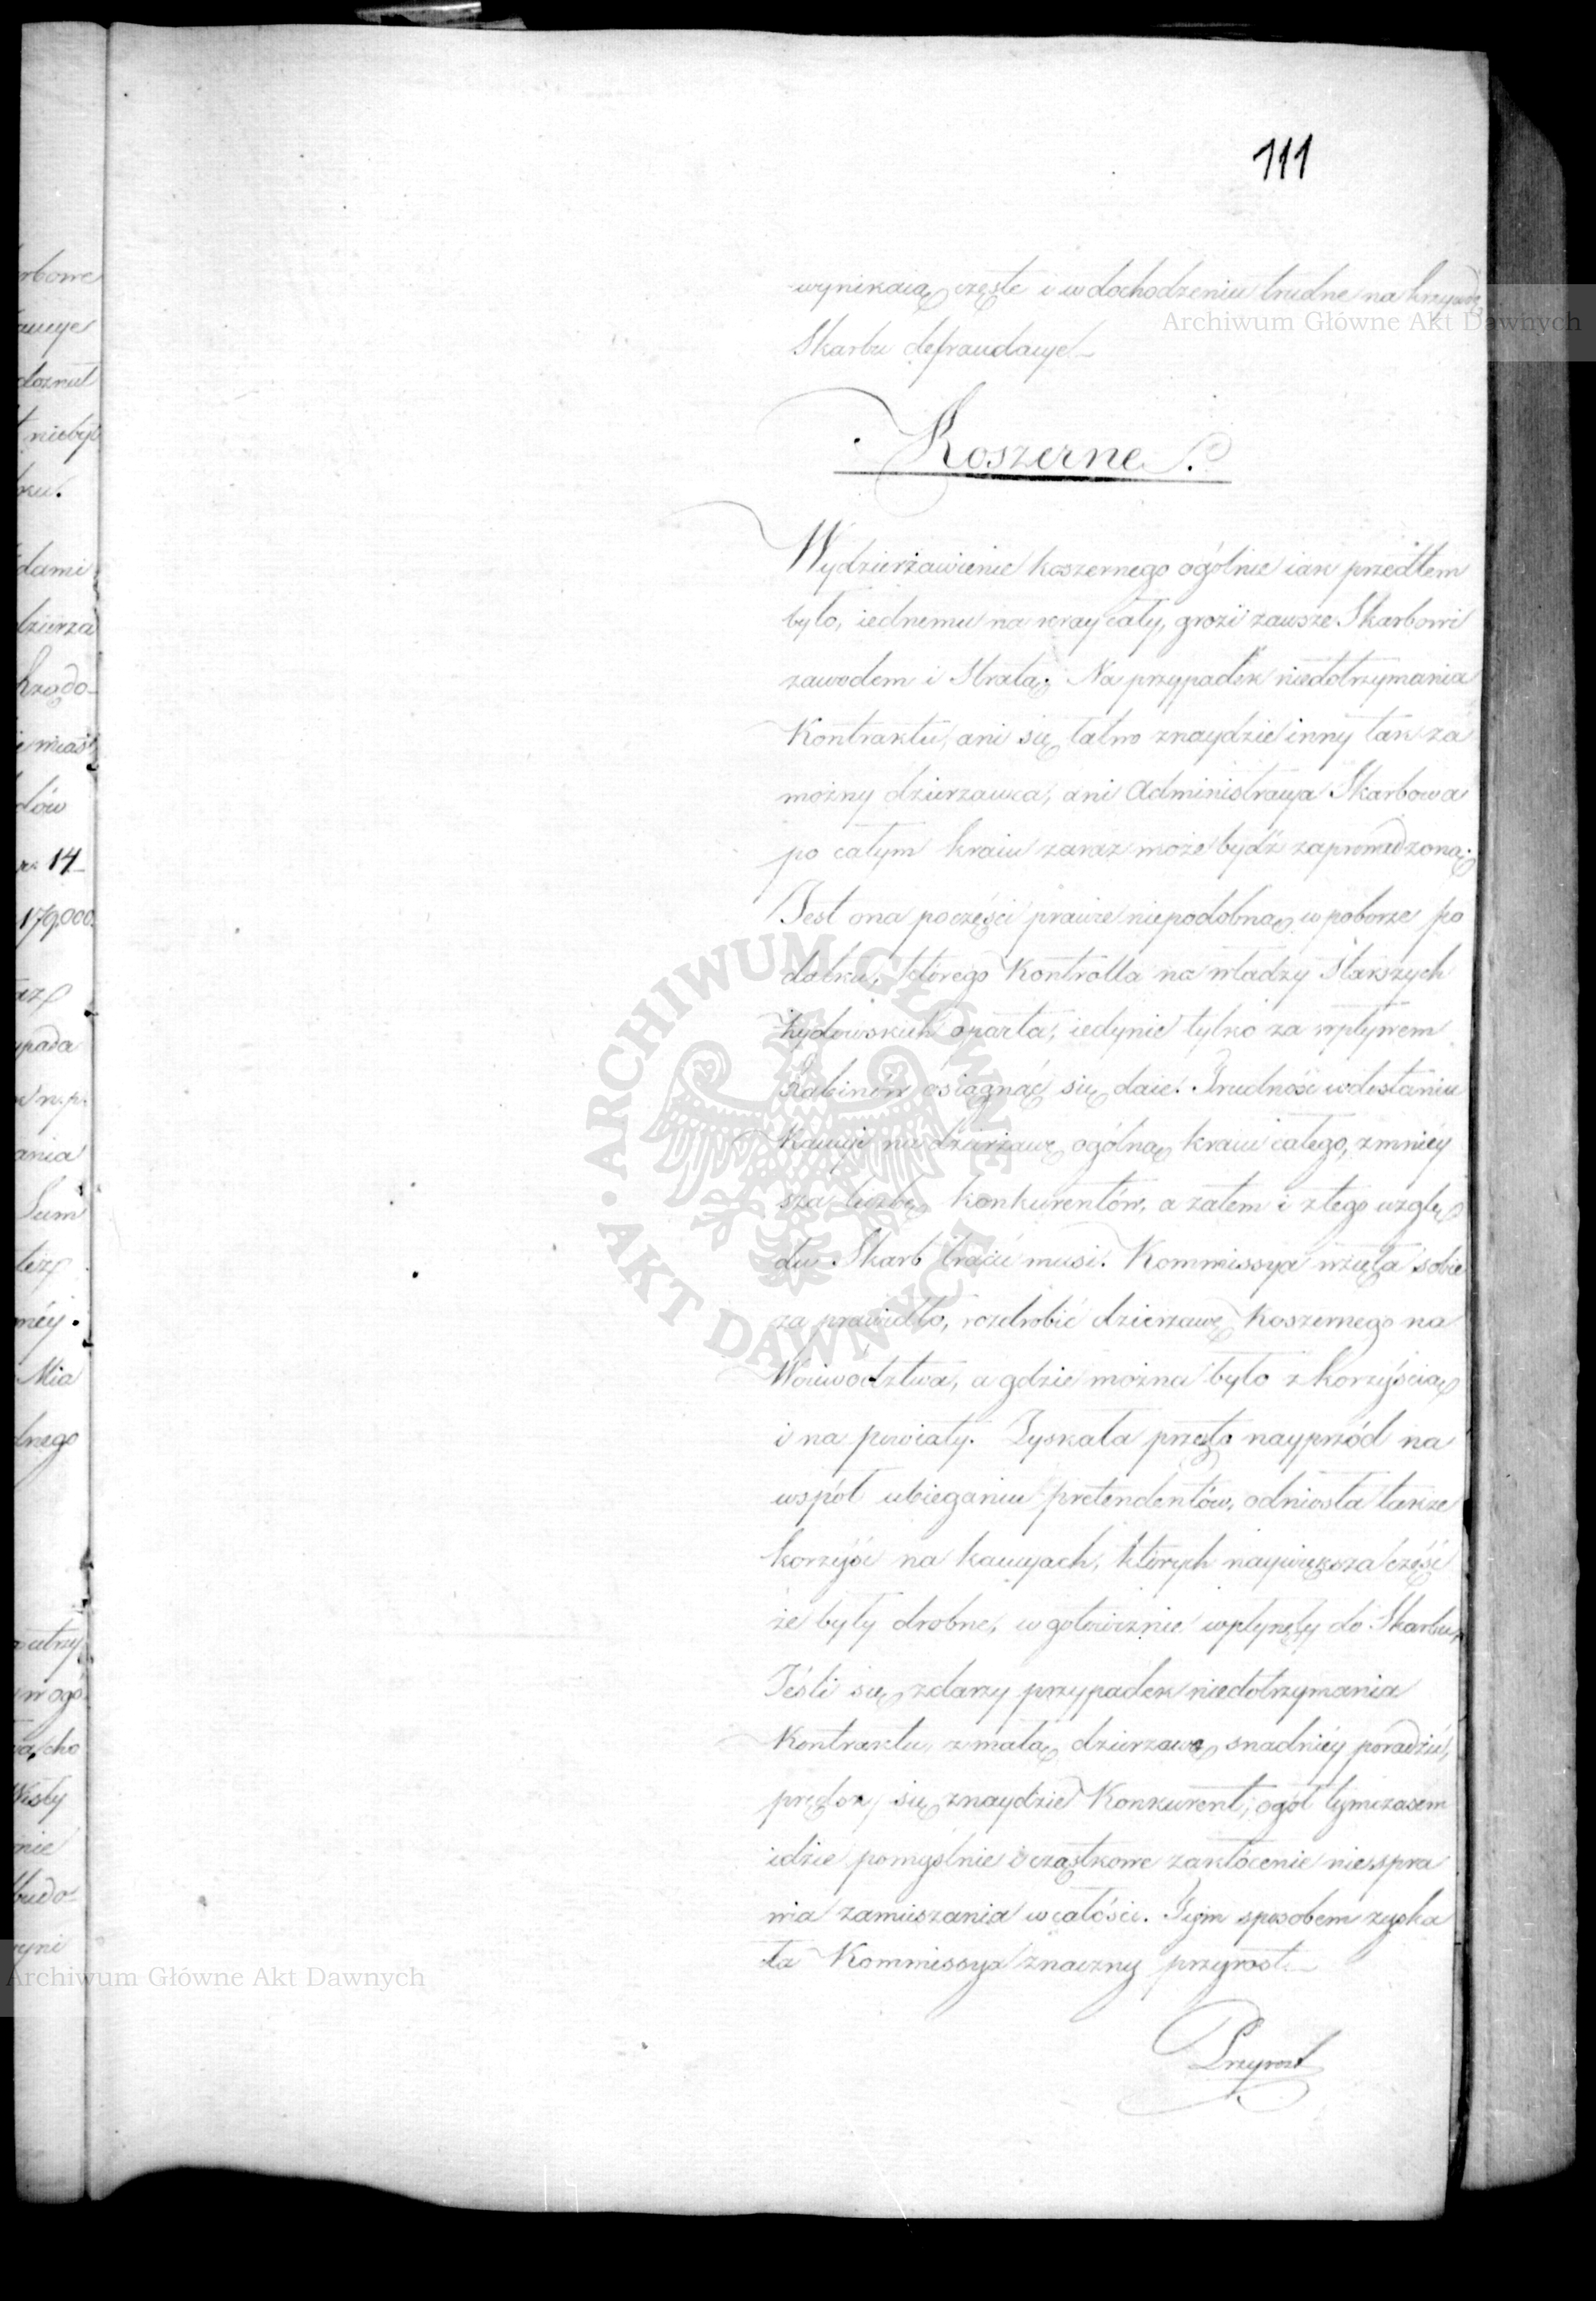 111
wynikaią częste i w dochodzeniu trudne na krzywdę
Skarbu defraudacye.
Koszerne.
Wydzierżawienie koszernego ogólnie iak przedtem
było, iednemu na kray cały, grozi zawsze Skarbowi
zawodem i Stratą. Na przypadek niedotrzymania
Kontraktu, ani się łatwo znaydzie inny tak za
możny dzierzawca, ani Administracya Skarbowa
po całym kraiu zaraz może bydź zaprowadzoną.
Jest ona po części prawie niepodobną w poborze po
datku, którego Kontrolla na władzy Starszych
żydowskich oparta, iedynie tylko za wpływem
Rabinów osiągnąć się daie. Trudność w dostaniu
Kaucyi na dzierżawę ogólną kraiu całego, zmniéy
sza liczbę konkurentów, a zatem i z tego wzglę
du Skarb tracić musi. Kommissya wzięła sobie
za prawidło, rozdrobić dzierzawę Koszernego na
Woiewództwa, a gdzie można było z korzyścią
i na powiaty. Zyskała przeto nayprzód na
wspól ubieganiu pretendentów, odniosła także
korzyść na kaucyach, których naywiększa część
że były drobne, w gotowiznie wpłynęły do Skarbu,
Jeśli się zdarzy przypadek niedotrzymania
Kontraktu, z małą dzierzawą snadniéy poradzić,
prędzey się znaydzie Konkurent; ogół tymczasem
idzie pomyślnie i cząstkowe zakłócenie niespra
wia zamieszania w całości. Tym sposobem zyska
ła Kommissya znaczny przyrost.
Przyrost
rbowe
doznał
niebył
ku.
dami
dzierza
Rządo
i miast
dów
14
179,000.
ypada
n.p.
ania
Sum
też
Mia
lnego
w ogó
cho
Wisły
nie
Archiwum Główne Akt Dawnych
Archiwum Główne Akt Dawnych
ARCHIWUM GŁÓWNE AKT DAWNYCH